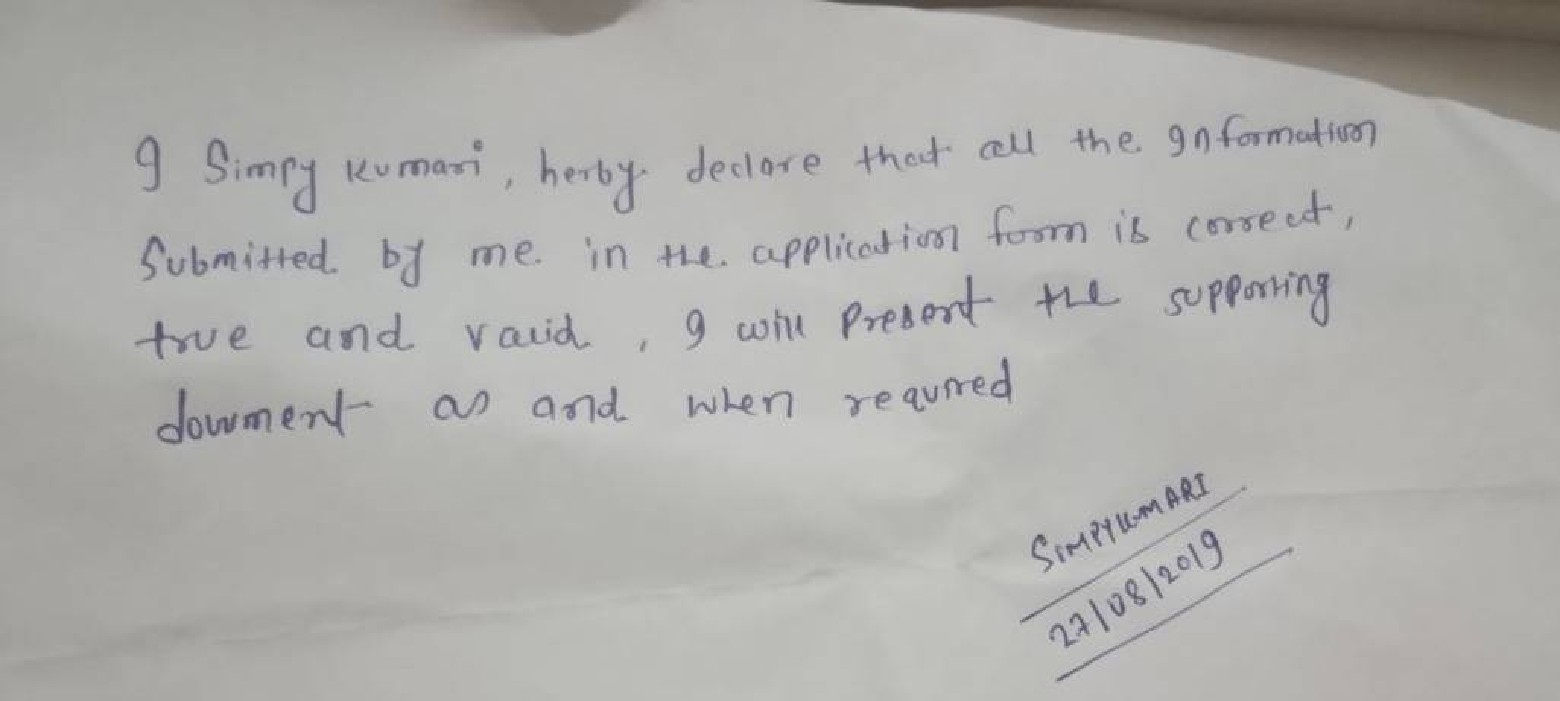 I Simpy Kumari, herby declare that all the Information
Submitted by me in the application form is correct,
true and vaild, I will Present the supporting
document as and when requried
SIMPY KUMARI
27/08/2019